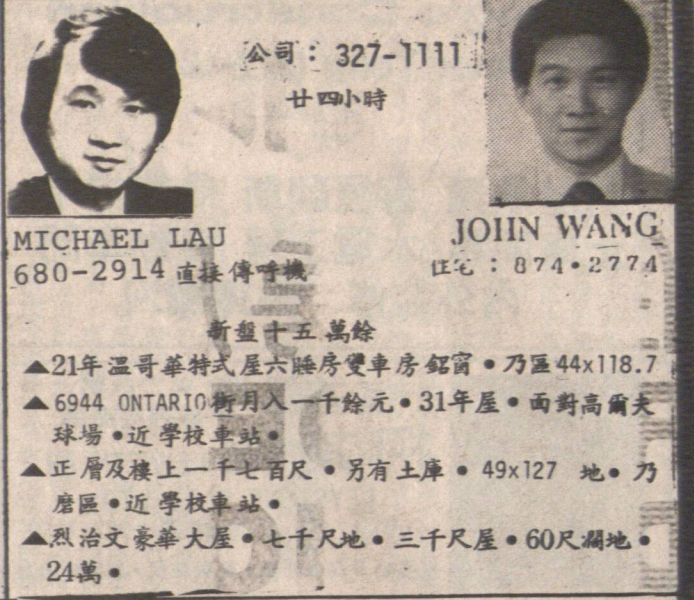 公司：327-1111
廿四小時
MICHAEL LAU
680-2914 直接傳呼機
JOHN WANG
住宅：874•2774
新盤十五萬餘
▲21年溫哥華特式屋六睡房雙車房鋁窗•乃區44x118.7
▲6944 ONTARIO街月入一千餘元•31年屋•面對高爾夫
球場•近學校車站•
▲正層及樓上一千七百尺•另有土庫•49x127 地•乃
磨區•近學校車站•
▲烈治文豪華大屋•七千尺地•三千尺屋•60尺濶地•
24萬•